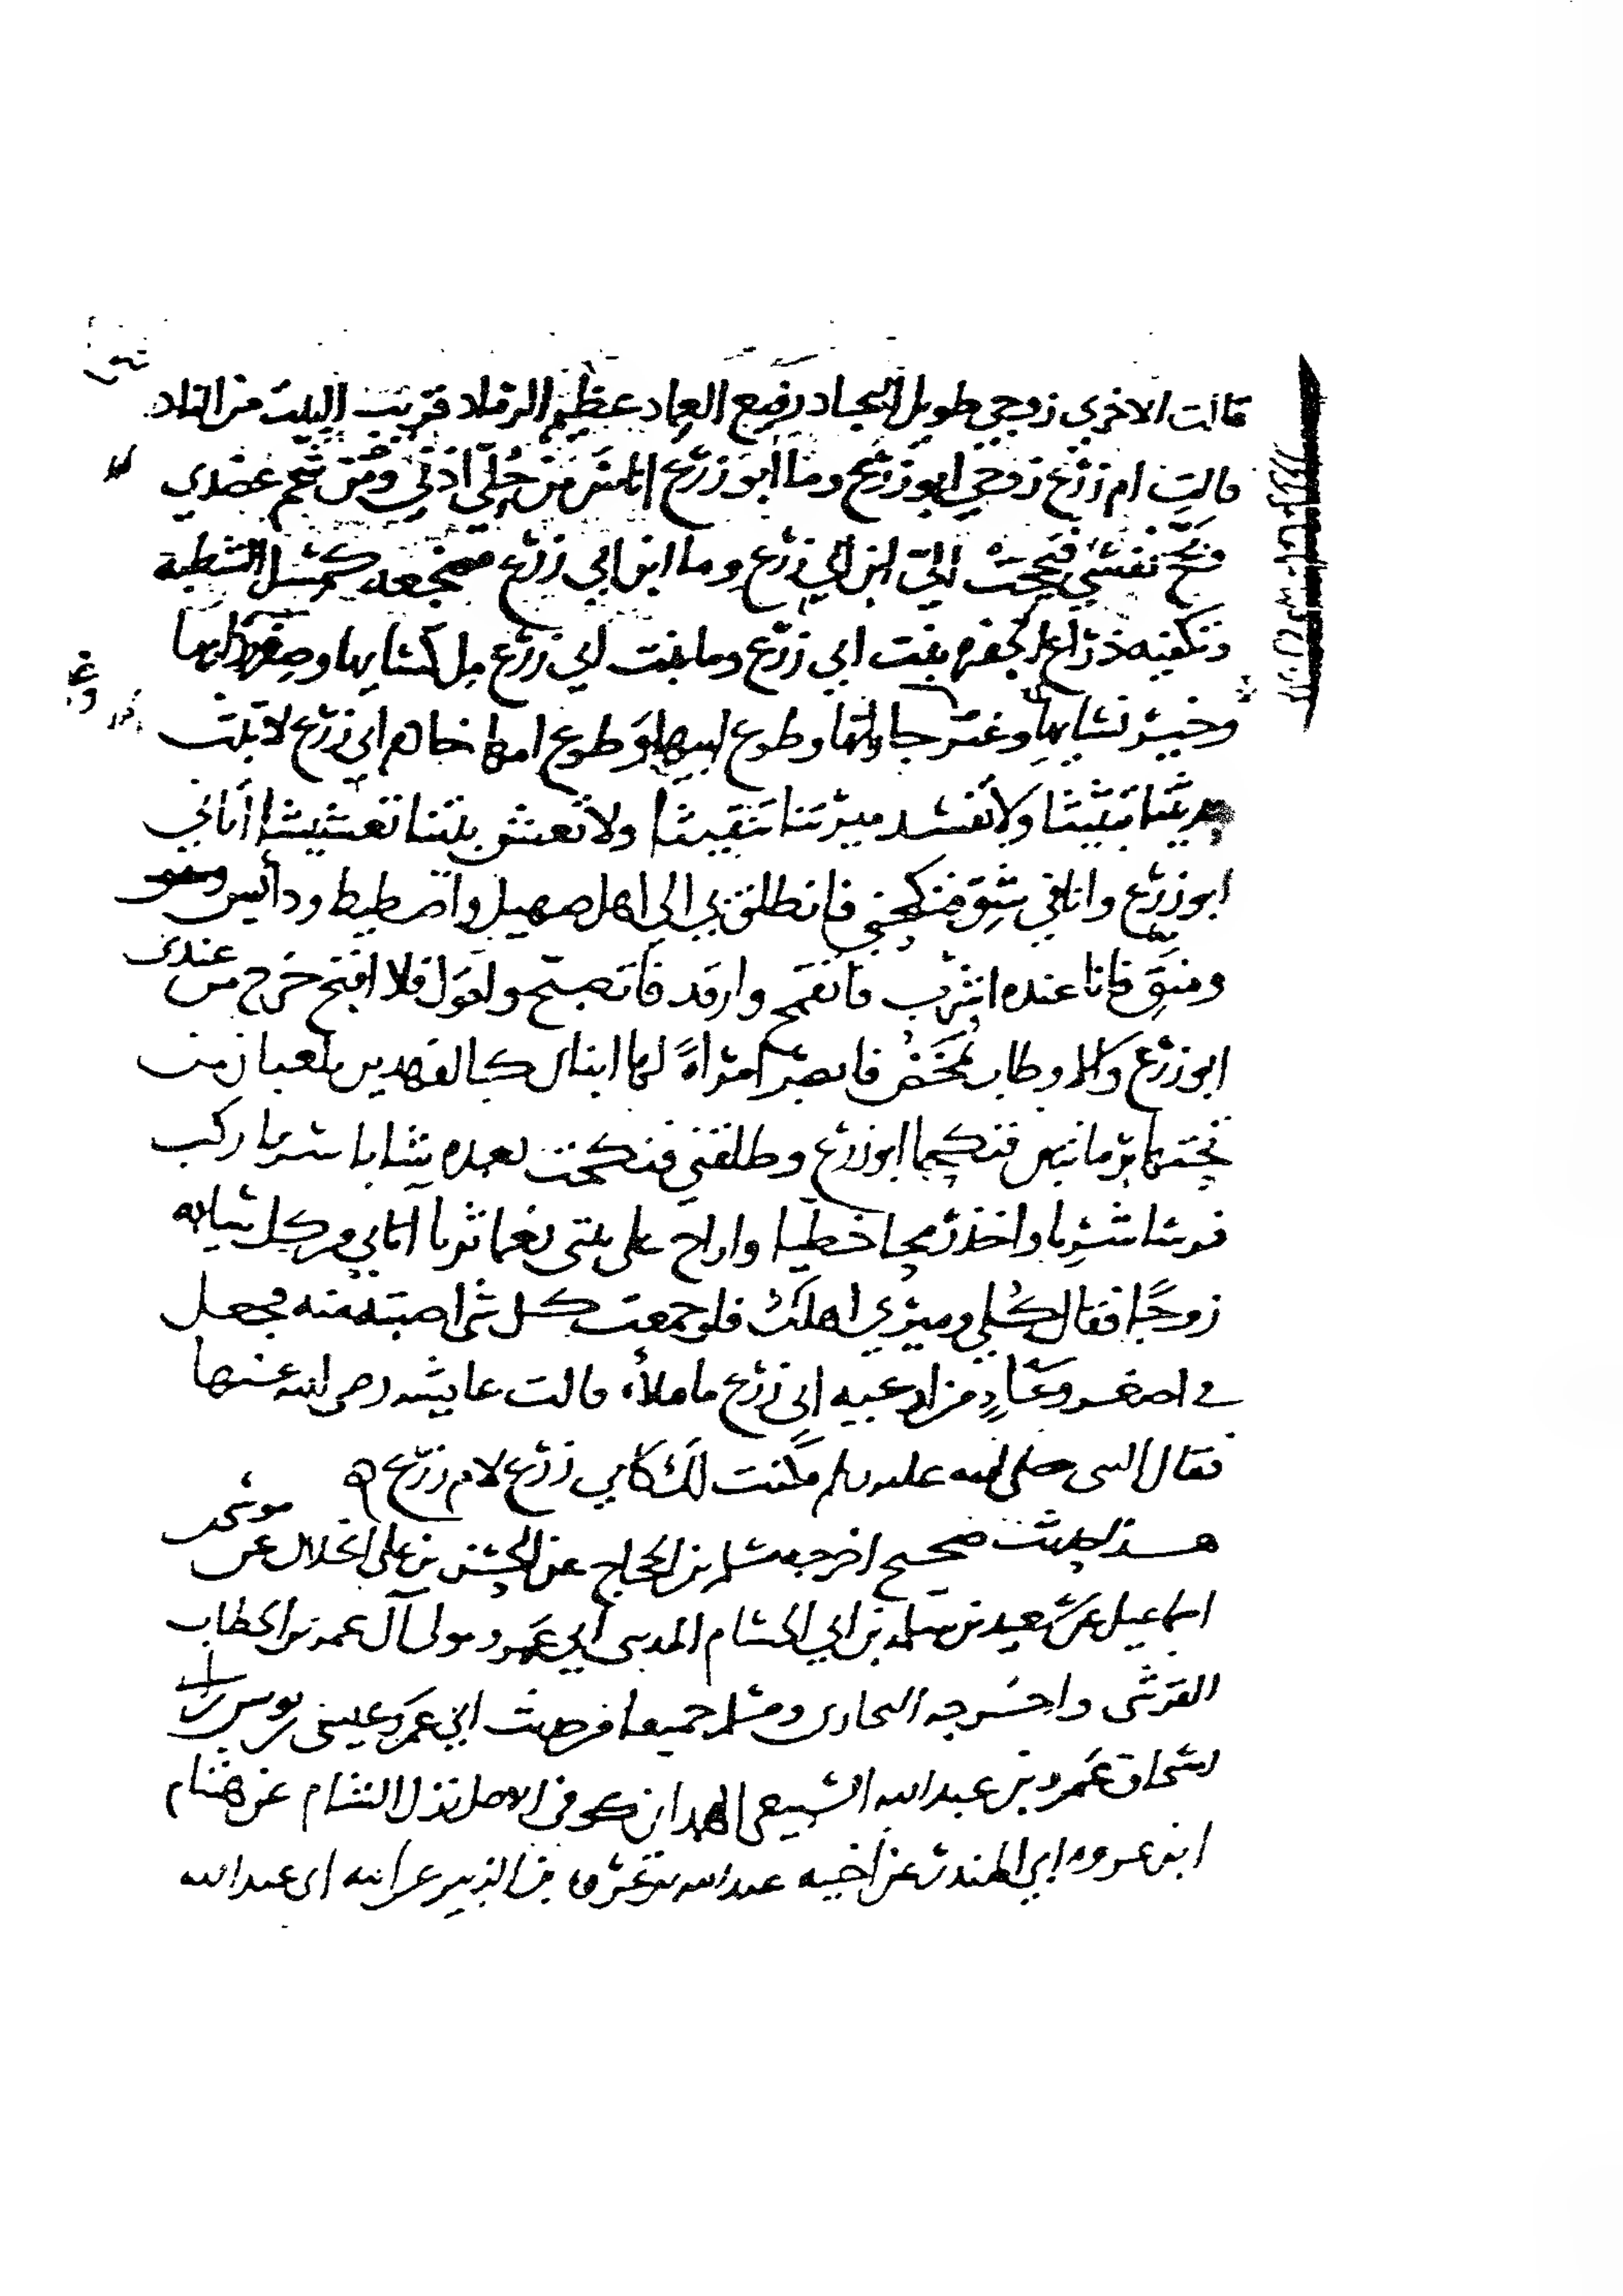 قالت الاخرى زوجي طويل النجاد رفيع العماد عظيم الرماد قريب البيت من الناد
قالت ام زرع زوجي ابو زرع وما ابو زرع اناس من حلي اذني ومن شحم عضدي
وبجح نفسي فبجحت الي ابن ابي زرع وما ابن ابي زرع مضجعه كمسل الشطبة
وتكفيه ذراع الجفره بنت ابي زرع وما بنت ابي زرع مل كسايها وصفر ردايها
وخير نسايها وعقر جاراتها وطوع ابيها وطوع امها خادم ابي زرع لا تبث
حديثنا تبثيثا ولا تفسد ميرتنا تنقيثا ولا تعشش بيتنا تعشيشا اتاني
ابو زرع وانا في شق فنكحني فانطلق بي الى اهل صهيل واطيط ودايس
ومنق فانا عنده اشرب فاتقمح وارقد فاتصبح واقول فلا اقبح خرج من عندى
ابو زرع والاوطاب تمخض فابصر امراة لها ابنان كالفهدين يلعبان من
تحتها برمانتين فنكحها ابو زرع وطلقني فنكحت بعده شابا سريا ركب
فرسا شريا واخذ رمحا خطيا واراح على بيتى نعما ثريا اتاني من كل شيايه
زوجا فقال كلي وميري اهلك فلو جمعت كل شى اصبته منه فجعل
في اصغر وعاء من اوعيه ابي زرع ما ملاه قالت عايشه رضى الله عنها
فقال النبى صلى الله عليه وسلم فكنت لك كابي زرع لام زرع
هذا حديث صحيح اخرجه مسلم بن الحجاج عن الحسن بن على الخلال عن موسى بن
اسماعيل عن سعيد بن سلمه بن ابي الحسام المدينى ابي عمرو مولى آل عمر بن الخطاب
القرشى واخرجه البخارى ومسلم جميعا من حديث ابي عمرو عيسى بن يونس بن ابى
اسحاق عمرو بن عبد الله السبيعى الهمدانى كوفى الاصل نزل الشام عن هشام
ابن عروه ابي المنذر عن اخيه عبد الله بن عروه بن الزبير عن ابيه ابى عبد الله